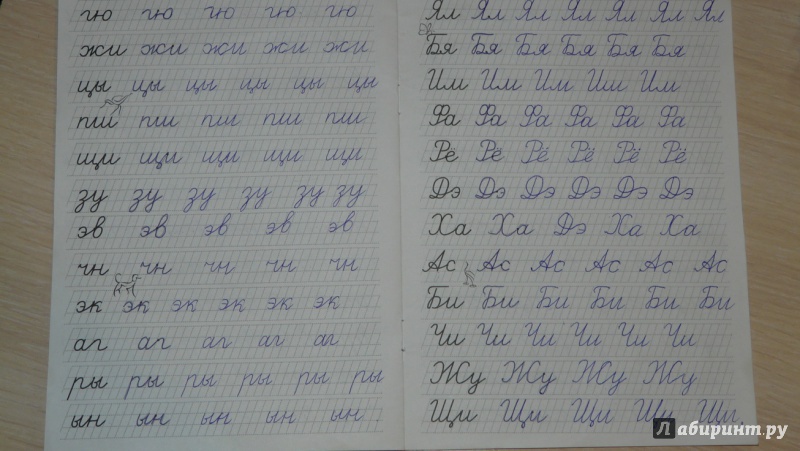 гю гю гю гю гю
жи жи жи жи жи
цы цы цы цы цы цы
пш пш пш пш пш
щи щи щи щи щи
зу зу зу зу зу зу
эв эв эв эв эв
чн чн чн чн чн
эк эк эк эк эк эк
аг аг аг аг аг
ры ры ры ры ры ры
ын ын ын ын ын
Ял Ял Ял Ял Ял Ял Ял
Бя Бя Бя Бя Бя Бя
Им Им Им Им Им
Фа Фа Фа Фа Фа Фа
Рё Рё Рё Рё Рё Рё
Дэ Дэ Дэ Дэ Дэ Дэ
Ха Ха Дэ Ха Ха
Ас Ас Ас Ас Ас Ас
Би Би Би Би Би Би
Чи Чи Чи Чи Чи Чи
Жу Жу Жу Жу
Щи Щи Щи Щи Щи
Лабиринт.ру